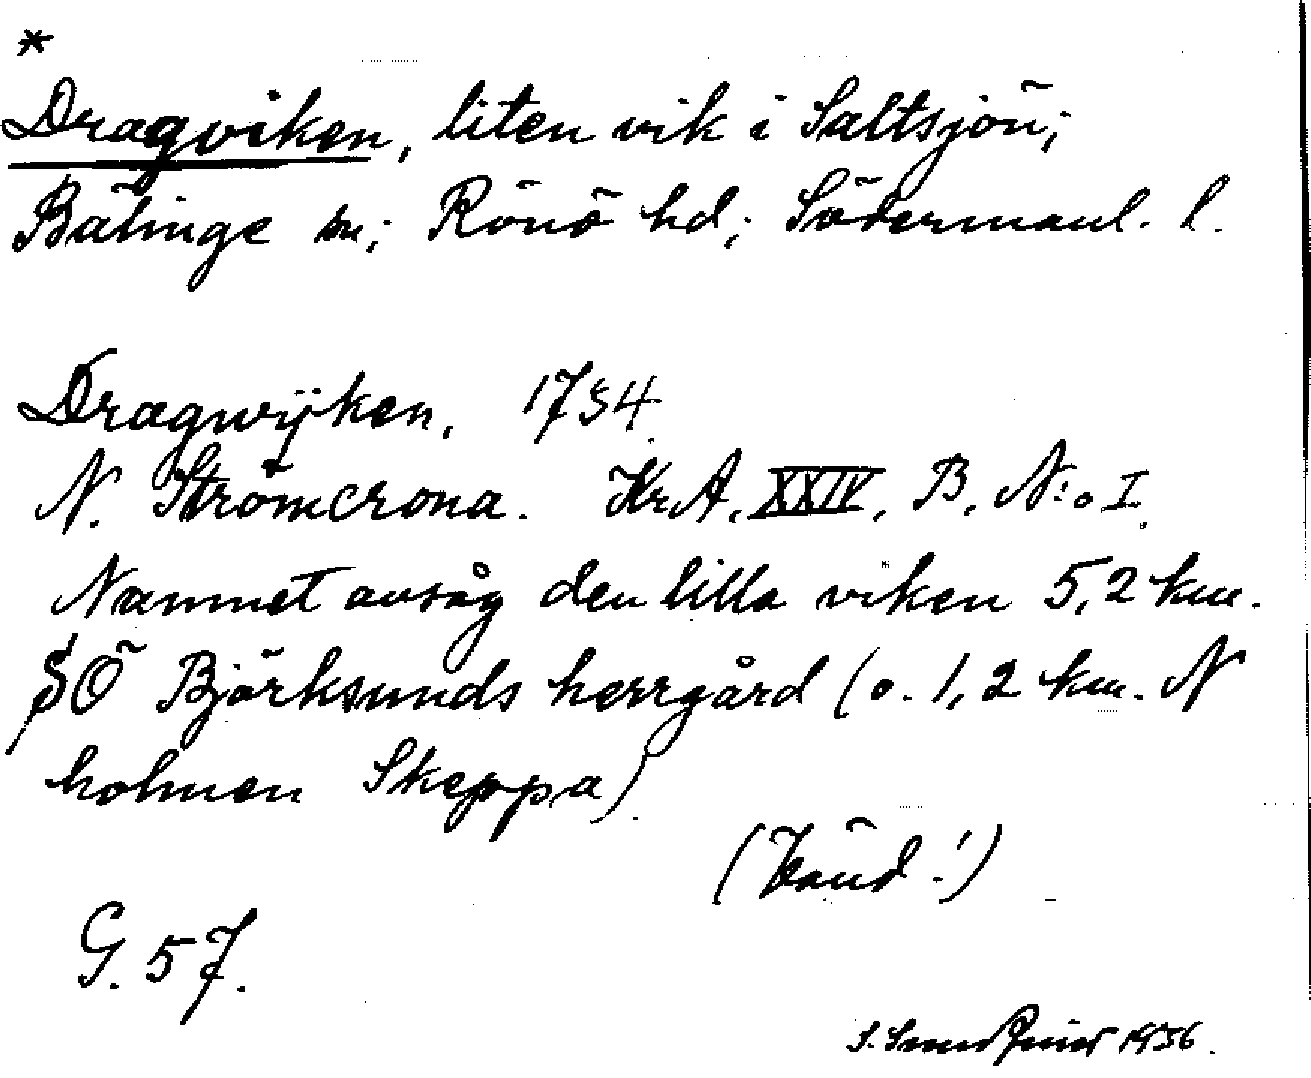 *
Dragviken, liten vik i Saltsjön;
Bälinge sn; Rönö hd; Södermanl. l.
Dragwijken, 1734
N. Strömcrona. Kr A. XXIV, B. N:o I.
Namnet avsåg den lilla viken 5,2 km.
SÖ Björksunds herrgård (o. 1,2 km. N
holmen Skeppa).
(Vänd!)
G. 57.
S. 1936.